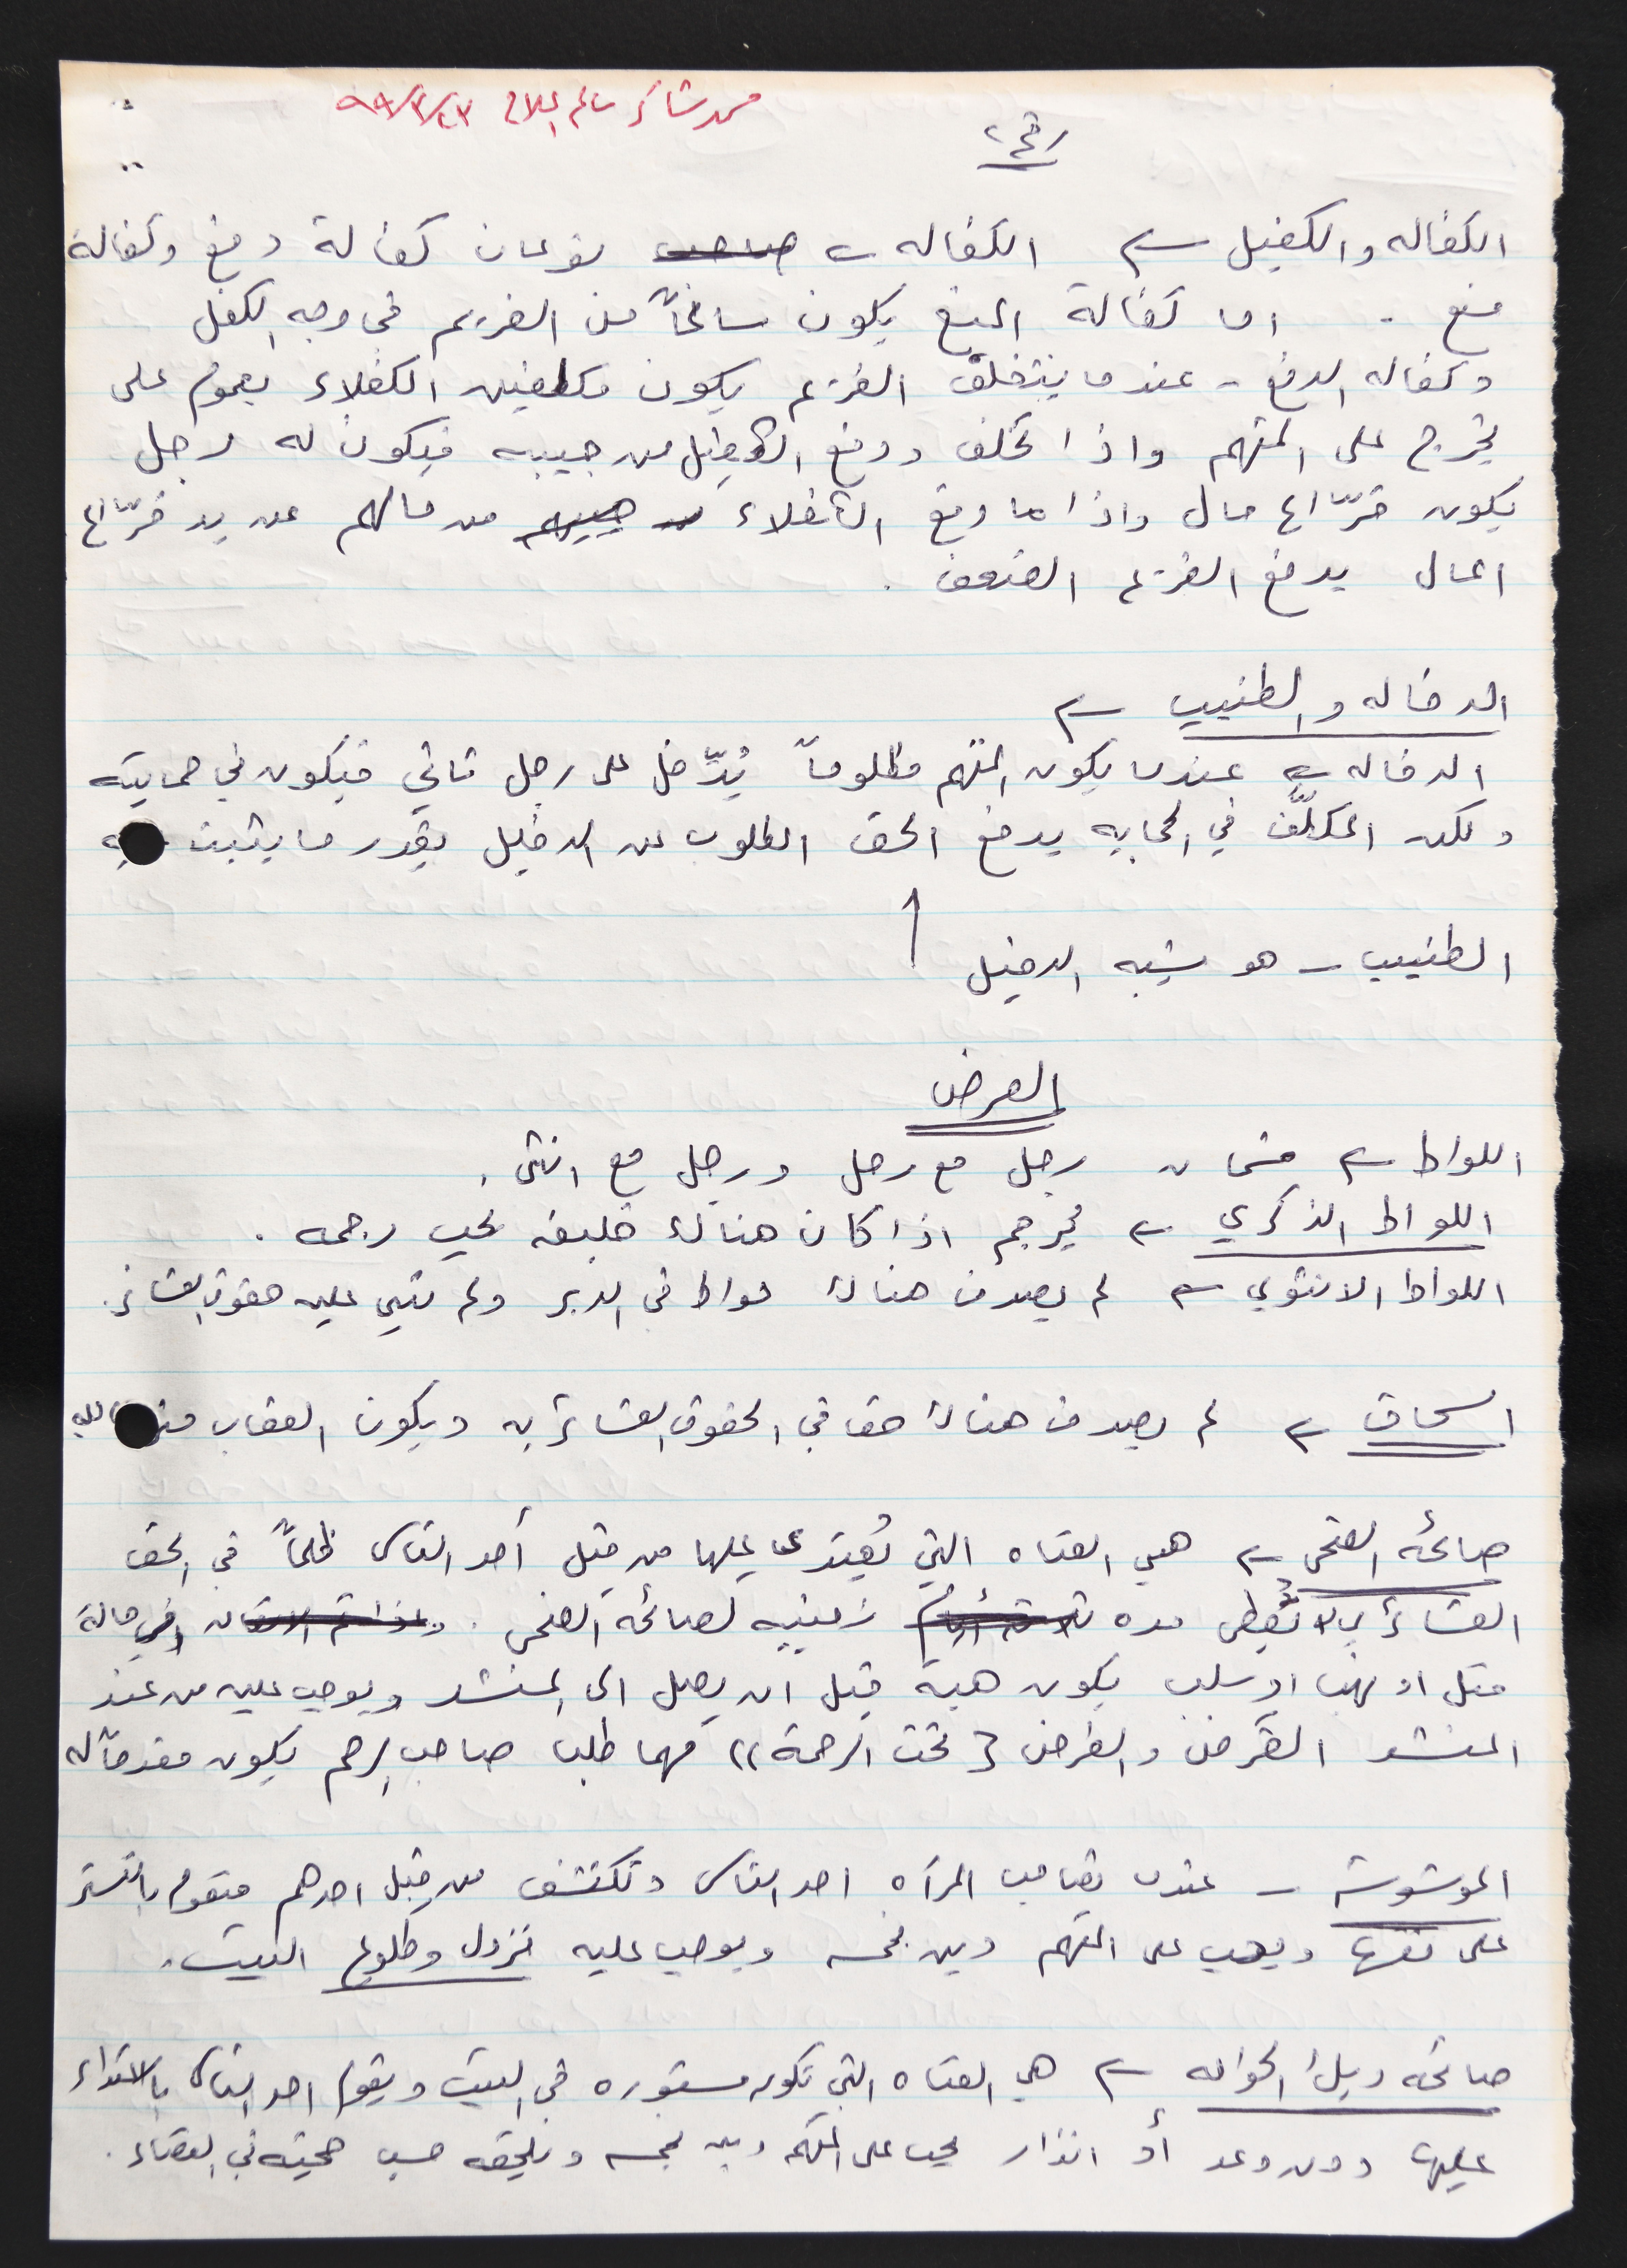 محمد شاكر سالم العلاج ٩٨/٢/٢٣
رقم ٢
الكفاله والكفيل الكفاله نوعان كفالة دفع وكفالة
منع - اما كفالة المنع يكون سانحاً من الغريم في وجه الكفل
وكفاله الدفع - عندما يتخلف الغريم يكون مكلفين الكفلاء بعموم على
يخرج على المتهم واذا تخلف ودفع الكفيل من جيبه فيكون له رجل
يكون فرّاع مال واذا ما دفع الكفلاء من جيبهم من مالهم عن يد فرّاع
المال يدفع الغريم الضعف .
الدخاله والطنيب
الدخاله عندما يكون المتهم مظلوماً يُدّخل على رجل ثاني فيكون في حمايته
ولكن المكلّف في الحمايه يدفع الحق المطلوب من الدخيل بقدر ما يثبت
الطنيب - هو شبه الدخيل
العرض
اللواط قسمان رجل مع رجل ورجل مع انثى .
اللواط الذكري يرجم اذا كان هناك خليفه يجب رجمه .
اللواط الانثوي لم يصدف هناك لواط في الدبر ولم تبنى عليه حقوق العشائر .
السحاق لم يصدف هناك حق في الحقوق العشائريه ويكون العقاب من الله
صائحة الضحى هي الفتاه التي يُعتدى عليها من قبل أحد الناس ظلماً في الحق
العشائري لا تُعطى مده ثلاثة أيام زمنيه لصائحة الضحى . وفي حالة
قتل او نهب او سلب يكون هبة قبل ان يصل الى المنشد ويوجب عليه من عند
المنشد القرض والفرض (( تحت الرحمة )) مهما طلب صاحب الرحم يكون مقدماً له
الموشوشه - عندما تصاحب المرأه احد الناس وتكتشف من قبل احدهم فتقوم بالتستر
على نفسها ويجب على المتهم دين بخمسه ويوجب عليه نزول وطلوع البيت .
صائحه ديل الحواله هي الفتاه التي تكون مستوره في البيت ويقوم احد الناس بالاعتداء
عليها دون وعد أو انذار يجب على المتهم دين بخمسه ويلحقه حسب حجيته في القضاء .